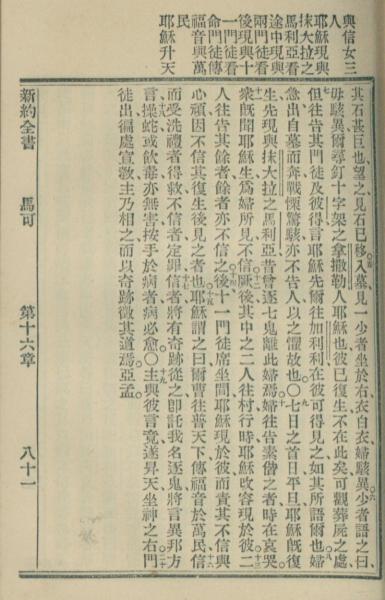 與信女三
人
耶穌現與
抹大拉之
馬利亞看
途中現與
兩門徒看
後現與十
一門徒看
命門徒傳
福音與萬
民
耶穌升天
其石甚巨也望之見石已移入墓見一少者坐於右衣白衣婦駭異少者語之曰
毋駭異爾尋釘十字架之拿撒勒人耶穌也彼已復生不在此矣可觀葬屍之處
但往告其門徒及彼得言耶穌先爾往加利利在彼可得見之如其所語爾也婦
急出自墓而奔戰慄驚駭亦不告人以之懼故也〇七日之首日平旦耶穌旣復
生先現與抹大拉之馬利亞昔曾逐七鬼離此婦焉婦往告素偕之者時在哀哭
衆旣聞耶穌生爲婦所見不信厥後其中之二人往村行時耶穌改容現於彼二
人往告其餘者餘者亦不信之後十一門徒席坐間耶穌現於彼而責其不信與
心頑因不信其復生後見之者也耶穌謂之曰爾曹往普天下傳福音於萬民信
而受洗禮者得救不信者定罪信者將有奇跡從之卽託我名逐鬼將言異邦方
言操蛇或飲毒亦無害按手於病者病必愈〇主與彼言竟遂昇天坐神之右門
徒出徧處宣敎主乃相之而以奇跡徵其道焉亞孟
新約全書 馬可 第十六章 八十一